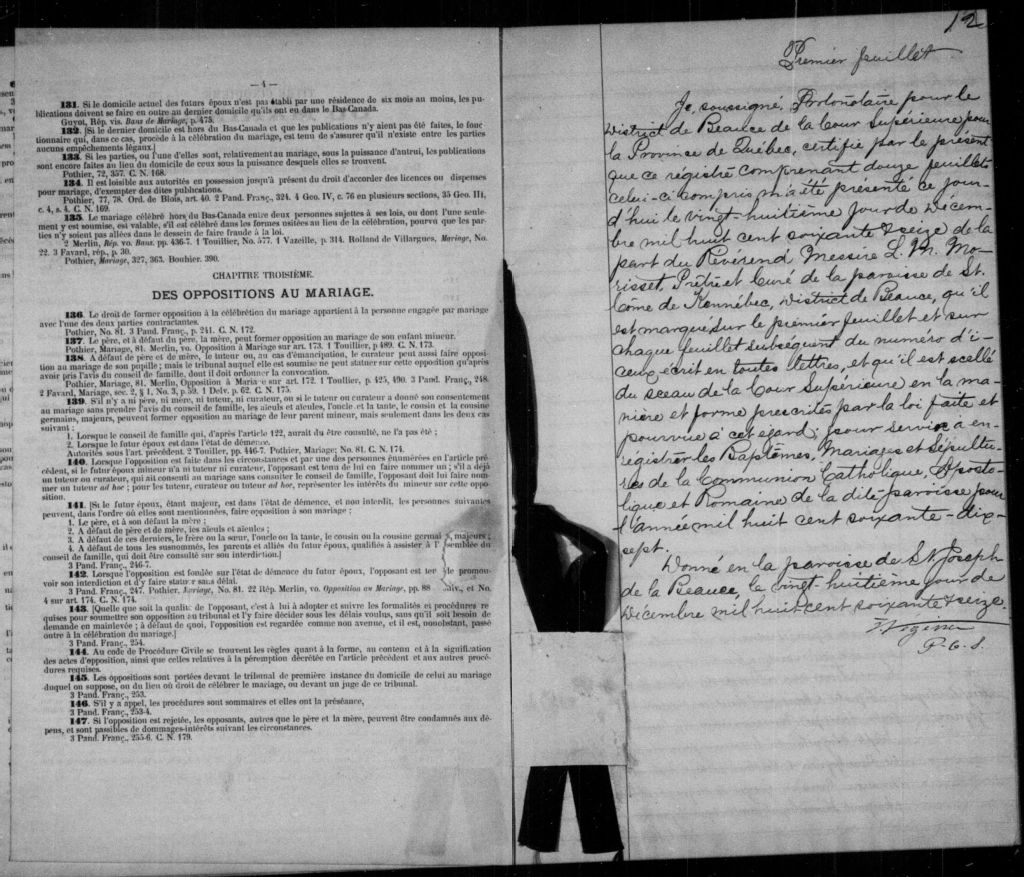 — 4 —
131. Si le domicile actuel des futurs époux n'est pas établi par une résidence de six mois au moins, les pu-
blications doivent se faire en outre au dernier domicile qu'ils ont eu dans le Bas-Canada.
Guyot, Rép. vis. Bans de Mariage, p. 475.
132. [Si le dernier domicile est hors du Bas-Canada et que les publications n'y aient pas été faites, le fonc-
tionnaire qui, dans ce cas, procède à la célébration du mariage, est tenu de s'assurer qu'il n'existe entre les parties
aucuns empêchements légaux.]
133. Si les parties, ou l'une d'elles, sont, relativement au mariage, sous la puissance d'autrui, les publications
sont encore faites au lieu du domicile de ceux sous la puissance desquels elles se trouvent.
Pothier, 72, 357. C. N. 168.
134. Il est loisible aux autorités en possession jusqu'à présent du droit d'accorder des licences ou dispenses
pour mariage, d'exempter des dites publications.
Pothier, 77, 78. Ord. de Blois, art. 40. 2 Pand. Franç., 324. 4 Geo. IV, c. 76 en plusieurs sections, 35 Geo. III,
c. 4, s. 4. C. N. 169.
135. Le mariage célébré hors du Bas-Canada entre deux personnes sujettes à ses lois, ou dont l'une seule-
ment y est soumise, est valable, s'il est célébré dans les formes usitées au lieu de la célébration, pourvu que les par-
ties n'y soient pas allées dans le dessein de faire fraude à la loi.
2 Merlin, Rép. vo. Bans. pp. 436-7. 1 Touillier, No. 577. 1 Vazeille, p. 314. Rolland de Villargues, Mariage, No.
22. 3 Favard, rép., p. 30.
Pothier, Mariage, 327, 363. Bouhier. 390.
CHAPITRE TROISIÈME.
DES OPPOSITIONS AU MARIAGE.
136. Le droit de former opposition à la célébration du mariage appartient à la personne engagée par mariage
avec l'une des deux parties contractantes.
Pothier, No. 81. 3 Pand. Franç., p. 241. C. N. 172.
137. Le père, et à défaut du père, la mère, peut former opposition au mariage de son enfant mineur.
Pothier, Mariage, 81. Merlin, vo. Opposition à Mariage sur art. 173. 1 Touillier, p. 489. C. N. 173.
138. A défaut de père et de mère, le tuteur ou, au cas d'émancipation, le curateur peut aussi faire opposi-
tion au mariage de son pupille; mais le tribunal auquel elle est soumise ne peut statuer sur cette opposition qu'après
avoir pris l'avis du conseil de famille, dont il doit ordonner la convocation.
Pothier, Mariage, 81. Merlin, Opposition à Mariage sur art. 172. 1 Toullier, p. 425, 490. 3 Pand. Franç., 248.
2 Favard, Mariage, sec. 2, § 1, No. 3, p. 59. 1 Delv. p. 62. C. N. 175.
139. S'il n'y a ni père, ni mère, ni tuteur, ni curateur, ou si le tuteur ou curateur a donné son consentement
au mariage sans prendre l'avis du conseil de famille, les aïeuls et aïeules, l'oncle et la tante, le cousin et la cousine
germains, majeurs, peuvent former opposition au mariage de leur parent mineur, mais seulement dans les deux cas
suivant:
1. Lorsque le conseil de famille qui, d'après l'article 122, aurait du être consulté, ne l'a pas été;
2. Lorsque le futur époux est dans l'état de démence.
Autorités sous l'art précédent. 2 Touiller, pp. 446-7. Pothier, Mariage; No. 81. C. N. 174.
140. Lorsque l'opposition est faite dans les circonstances et par une des personnes énumérées en l'article pré-
cédent, si le futur époux mineur n'a ni tuteur ni curateur, l'opposant est tenu de lui en faire nommer un; s'il a déjà
un tuteur ou curateur, qui ait consenti au mariage sans consulter le conseil de famille, l'opposant doit lui faire nom-
mer un tuteur ad hoc; pour les tuteur, curateur ou tuteur ad hoc, représenter les intérêts du mineur sur cette oppo-
sition.
141. [Si le futur époux, étant majeur, est dans l'état de démence, et non interdit, les personnes suivantes
peuvent, dans l'ordre où elles sont mentionnées, faire opposition à son mariage:
1. Le père, et à son défaut la mère;
2. A défaut de père et de mère, les aïeuls et aïeules;
3. A défaut de ces derniers, le frère ou la sœur, l'oncle ou la tante, le cousin ou la cousine germains, majeurs;
4. A défaut de tous les susnommés, les parents et alliés du futur époux, qualifiés à assister à l'assemblée du
conseil de famille, qui doit être consulté sur son interdiction.]
3 Pand. Franç., 246-7.
142. Lorsque l'opposition est fondée sur l'état de démence du futur époux, l'opposant est tenu de promou-
voir son interdiction et d'y faire statuer sans délai.
3 Pand. Franç., 247. Pothier, Mariage, No. 81. 22 Rép. Merlin, vo. Opposition au Mariage, pp. 88 et suiv., et No.
4 sur art. 174. C. N. 174.
143. [Quelque soit la qualité de l'opposant, c'est à lui à adopter et suivre les formalités et procédures re-
quises pour soumettre son opposition au tribunal et l'y faire décider sous les délais voulus, sans qu'il soit besoin de
demande en mainlevée; à défaut de quoi, l'opposition est regardée comme non avenue, et il est, nonobstant, passé
outre à la célébration du mariage.]
3 Pand. Franç., 254.
144. Au code de Procédure Civile se trouvent les règles quant à la forme, au contenu et à la signification
des actes d'opposition, ainsi que celles relatives à la péremption décrétée en l'article précédent et aux autres procé-
dures requises.
145. Les oppositions sont portées devant le tribunal de première instance du domicile de celui au mariage
duquel on suppose, ou du lieu où droit de célébrer le mariage, ou devant un juge de ce tribunal.
3 Pand. Franç., 253.
146. S'il y a appel, les procédures sont sommaires et elles ont la préséance,
3 Pand. Franç., 253-4.
147. Si l'opposition est rejetée, les opposants, autres que le père et la mère, peuvent être condamnés aux dé-
pens, et sont passibles de dommages-intérêts suivant les circonstances.
3 Pand. Franç., 255-6. C. N. 179.
12
Premier feuillet
Je, soussigné, Protonotaire pour le
District de Beauce de la Cour Supérieure pour
la Province de Québec, certifie par le présent
que ce régistre comprenant douze feuillets
celui-ci compris m'a été présenté ce jour-
d'hui le vingt-huitième jour de Décem-
bre mil huit cent soixante & seize de la
part du Révérend Messire L. M. Mo-
risset, Prêtre et Curé de la paroisse de St.
Côme de Kennébec, District de Beauce, qu'il
est marqué sur le premier feuillet et sur
chaque feuillet subséquent du numéro d'i-
ceux écrit en toutes lettres, et qu'il est scellé
du sceau de la Cour Supérieure en la ma-
nière et forme prescrites par la loi faite et
pourvue à cet égard; pour servir a en-
régistrer les Baptêmes, Mariages et Sépultu-
res de la Communion Catholique, Aposto-
lique et Romaine de la dite paroisse pour
l'année mil huit cent soixante-dix-
sept.
Donné en la paroisse de St. Joseph
de la Beauce, le vingt huitième jour de
Décembre mil huit cent soixante & seize.
P. C. S.